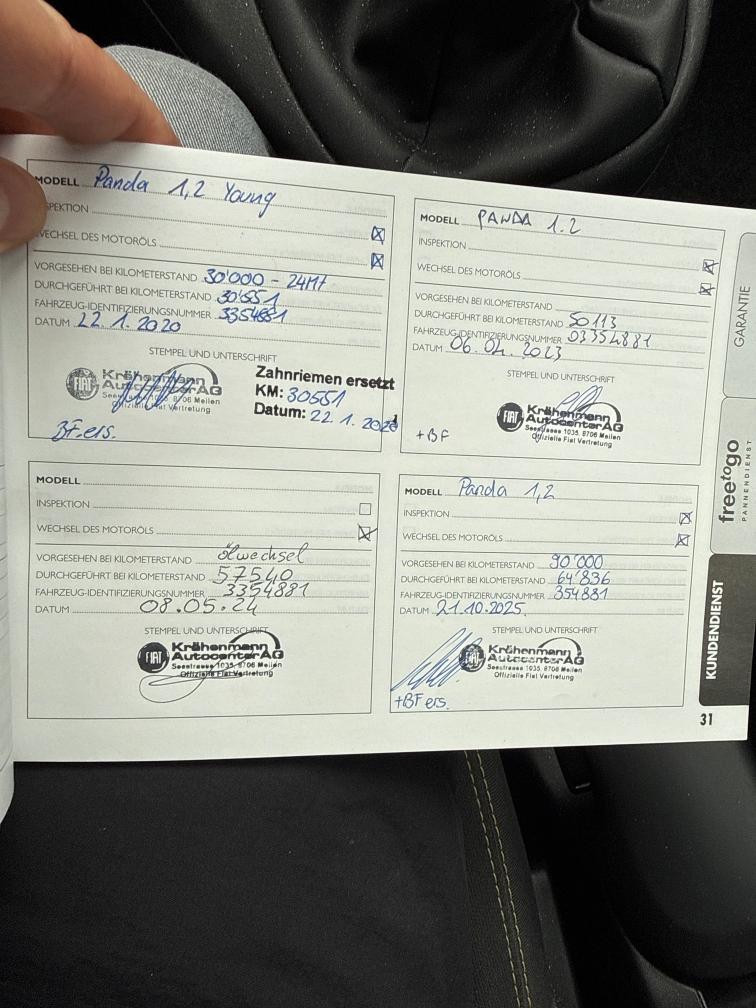 MODELL Panda 1,2 Young
SPEKTION
WECHSEL DES MOTORÖLS
VORGESEHEN BEI KILOMETERSTAND 30'000 - 24MT
DURCHGEFÜHRT BEI KILOMETERSTAND 30'551
FAHRZEUG-IDENTIFIZIERUNGSNUMMER 3354881
DATUM 22.1.2020
STEMPEL UND UNTERSCHRIFT
FIAT
Krähenmann
Autocenter AG
Seestrasse 1035, 8706 Meilen
Offizielle Fiat Vertretung
Zahnriemen ersetzt
KM: 30551
Datum: 22.1.2020
BF ers.
MODELL PANDA 1.2
INSPEKTION
WECHSEL DES MOTORÖLS
VORGESEHEN BEI KILOMETERSTAND
DURCHGEFÜHRT BEI KILOMETERSTAND 50113
FAHRZEUG-IDENTIFIZIERUNGSNUMMER 03354881
DATUM 06.04.2023
STEMPEL UND UNTERSCHRIFT
FIAT
Krähenmann
Autocenter AG
Seestrasse 1035, 8706 Meilen
Offizielle Fiat Vertretung
+BF
MODELL
INSPEKTION
WECHSEL DES MOTORÖLS
VORGESEHEN BEI KILOMETERSTAND ölwechsel
DURCHGEFÜHRT BEI KILOMETERSTAND 57540
FAHRZEUG-IDENTIFIZIERUNGSNUMMER 3354881
DATUM 08.05.24
STEMPEL UND UNTERSCHRIFT
FIAT
Krähenmann
Autocenter AG
Seestrasse 1035, 8706 Meilen
Offizielle Fiat Vertretung
MODELL Panda 1,2
INSPEKTION
WECHSEL DES MOTORÖLS
VORGESEHEN BEI KILOMETERSTAND 90'000
DURCHGEFÜHRT BEI KILOMETERSTAND 64'836
FAHRZEUG-IDENTIFIZIERUNGSNUMMER 354881
DATUM 21.10.2025
STEMPEL UND UNTERSCHRIFT
FIAT
Krähenmann
Autocenter AG
Seestrasse 1035, 8706 Meilen
Offizielle Fiat Vertretung
+BF ers.
GARANTIE
freetogo
PANNENDIENST
KUNDENDIENST
31